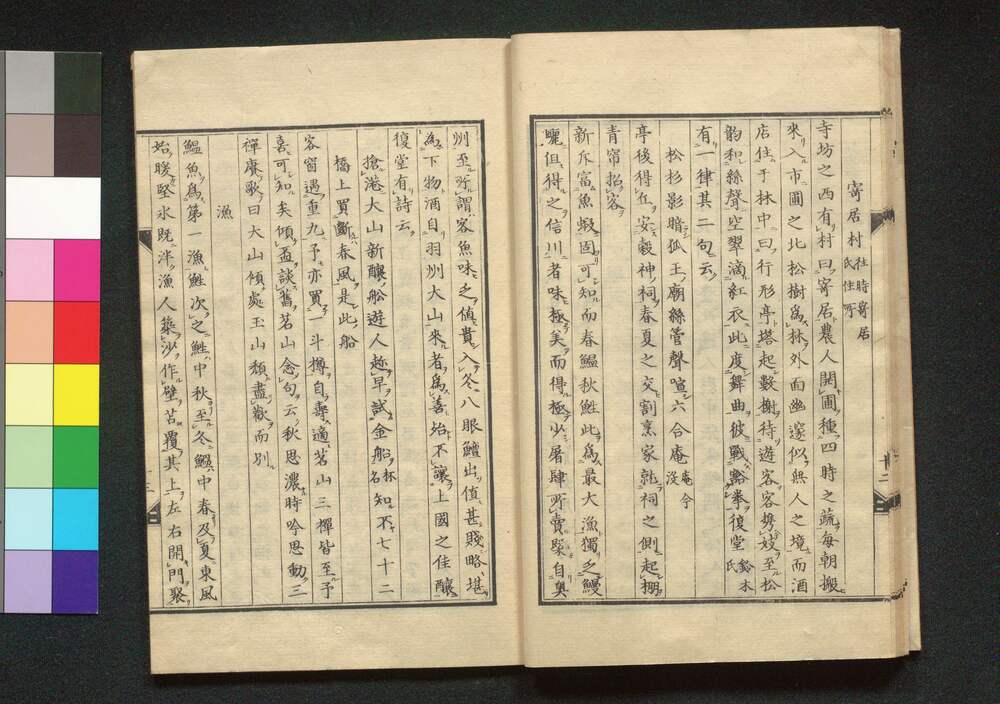 寄居村 往時寄居氏住所
寺坊之西有村曰寄居農人開圃種四時之蔬每朝搬
來入市圃之北松樹爲林外面幽邃似無人之境而酒
店住于林中曰行形亭塔起數榭待遊客客携妓至松
韵和絲聲空翠滴紅衣此度舞曲彼戰豁拳復堂 鈴木氏
有一律其二句云
松杉影暗狐王廟絲管聲喧六合庵 庵今沒
亭後得在安穀神祠春夏之交割烹家就祠之側起棚
青帘招客
新斥富魚蝦固可知而春鰮秋鮏此爲最大漁獨乏鰻
曬但得之信川者味極美而得極少屠肆所賣槩自奧
州至所謂客魚味乏値貴入冬八眼鱧出値甚賤略堪
爲下物酒自羽州大山來者爲善殆不讓上國之佳釀
復堂有詩云
搶港大山新釀船遊人趁早試金船 杯名 知不七十二
橋上買斷春風是此船
客窗遇重九予亦買一斗樽自壽適茗山三樨皆至予
喜可知矣傾盃談舊茗山念句云秋思濃時吟思動三
禪賡歌曰大山傾處玉山頹盡歡而別
漁
鰮魚爲第一漁鮏次之鮏中秋至冬鰮中春及夏東風
始暖堅氷既泮漁人築沙作壁苫覆其上左右開門聚